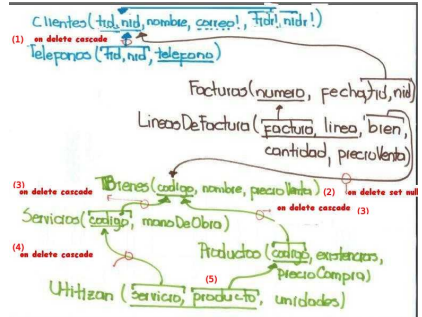 Clientes (tid, nid, nombre, correo!, tidr!, nidr!)
(1) on delete cascade
Telefonos (tid, nid, telefono)
Facturas (numero, fecha, tid, nid)
LineasDeFactura (factura, linea, bien,
cantidad, precioVenta)
(3) on delete cascade
Bienes (codigo, nombre, precioVenta) (2) on delete set nul
on delete cascade (3)
Servicios (codigo, manoDeObra)
(4) on delete cascade
Productos (codigo, existencias,
precioCompra)
(5)
Utilizan (servicio, producto, unidades)